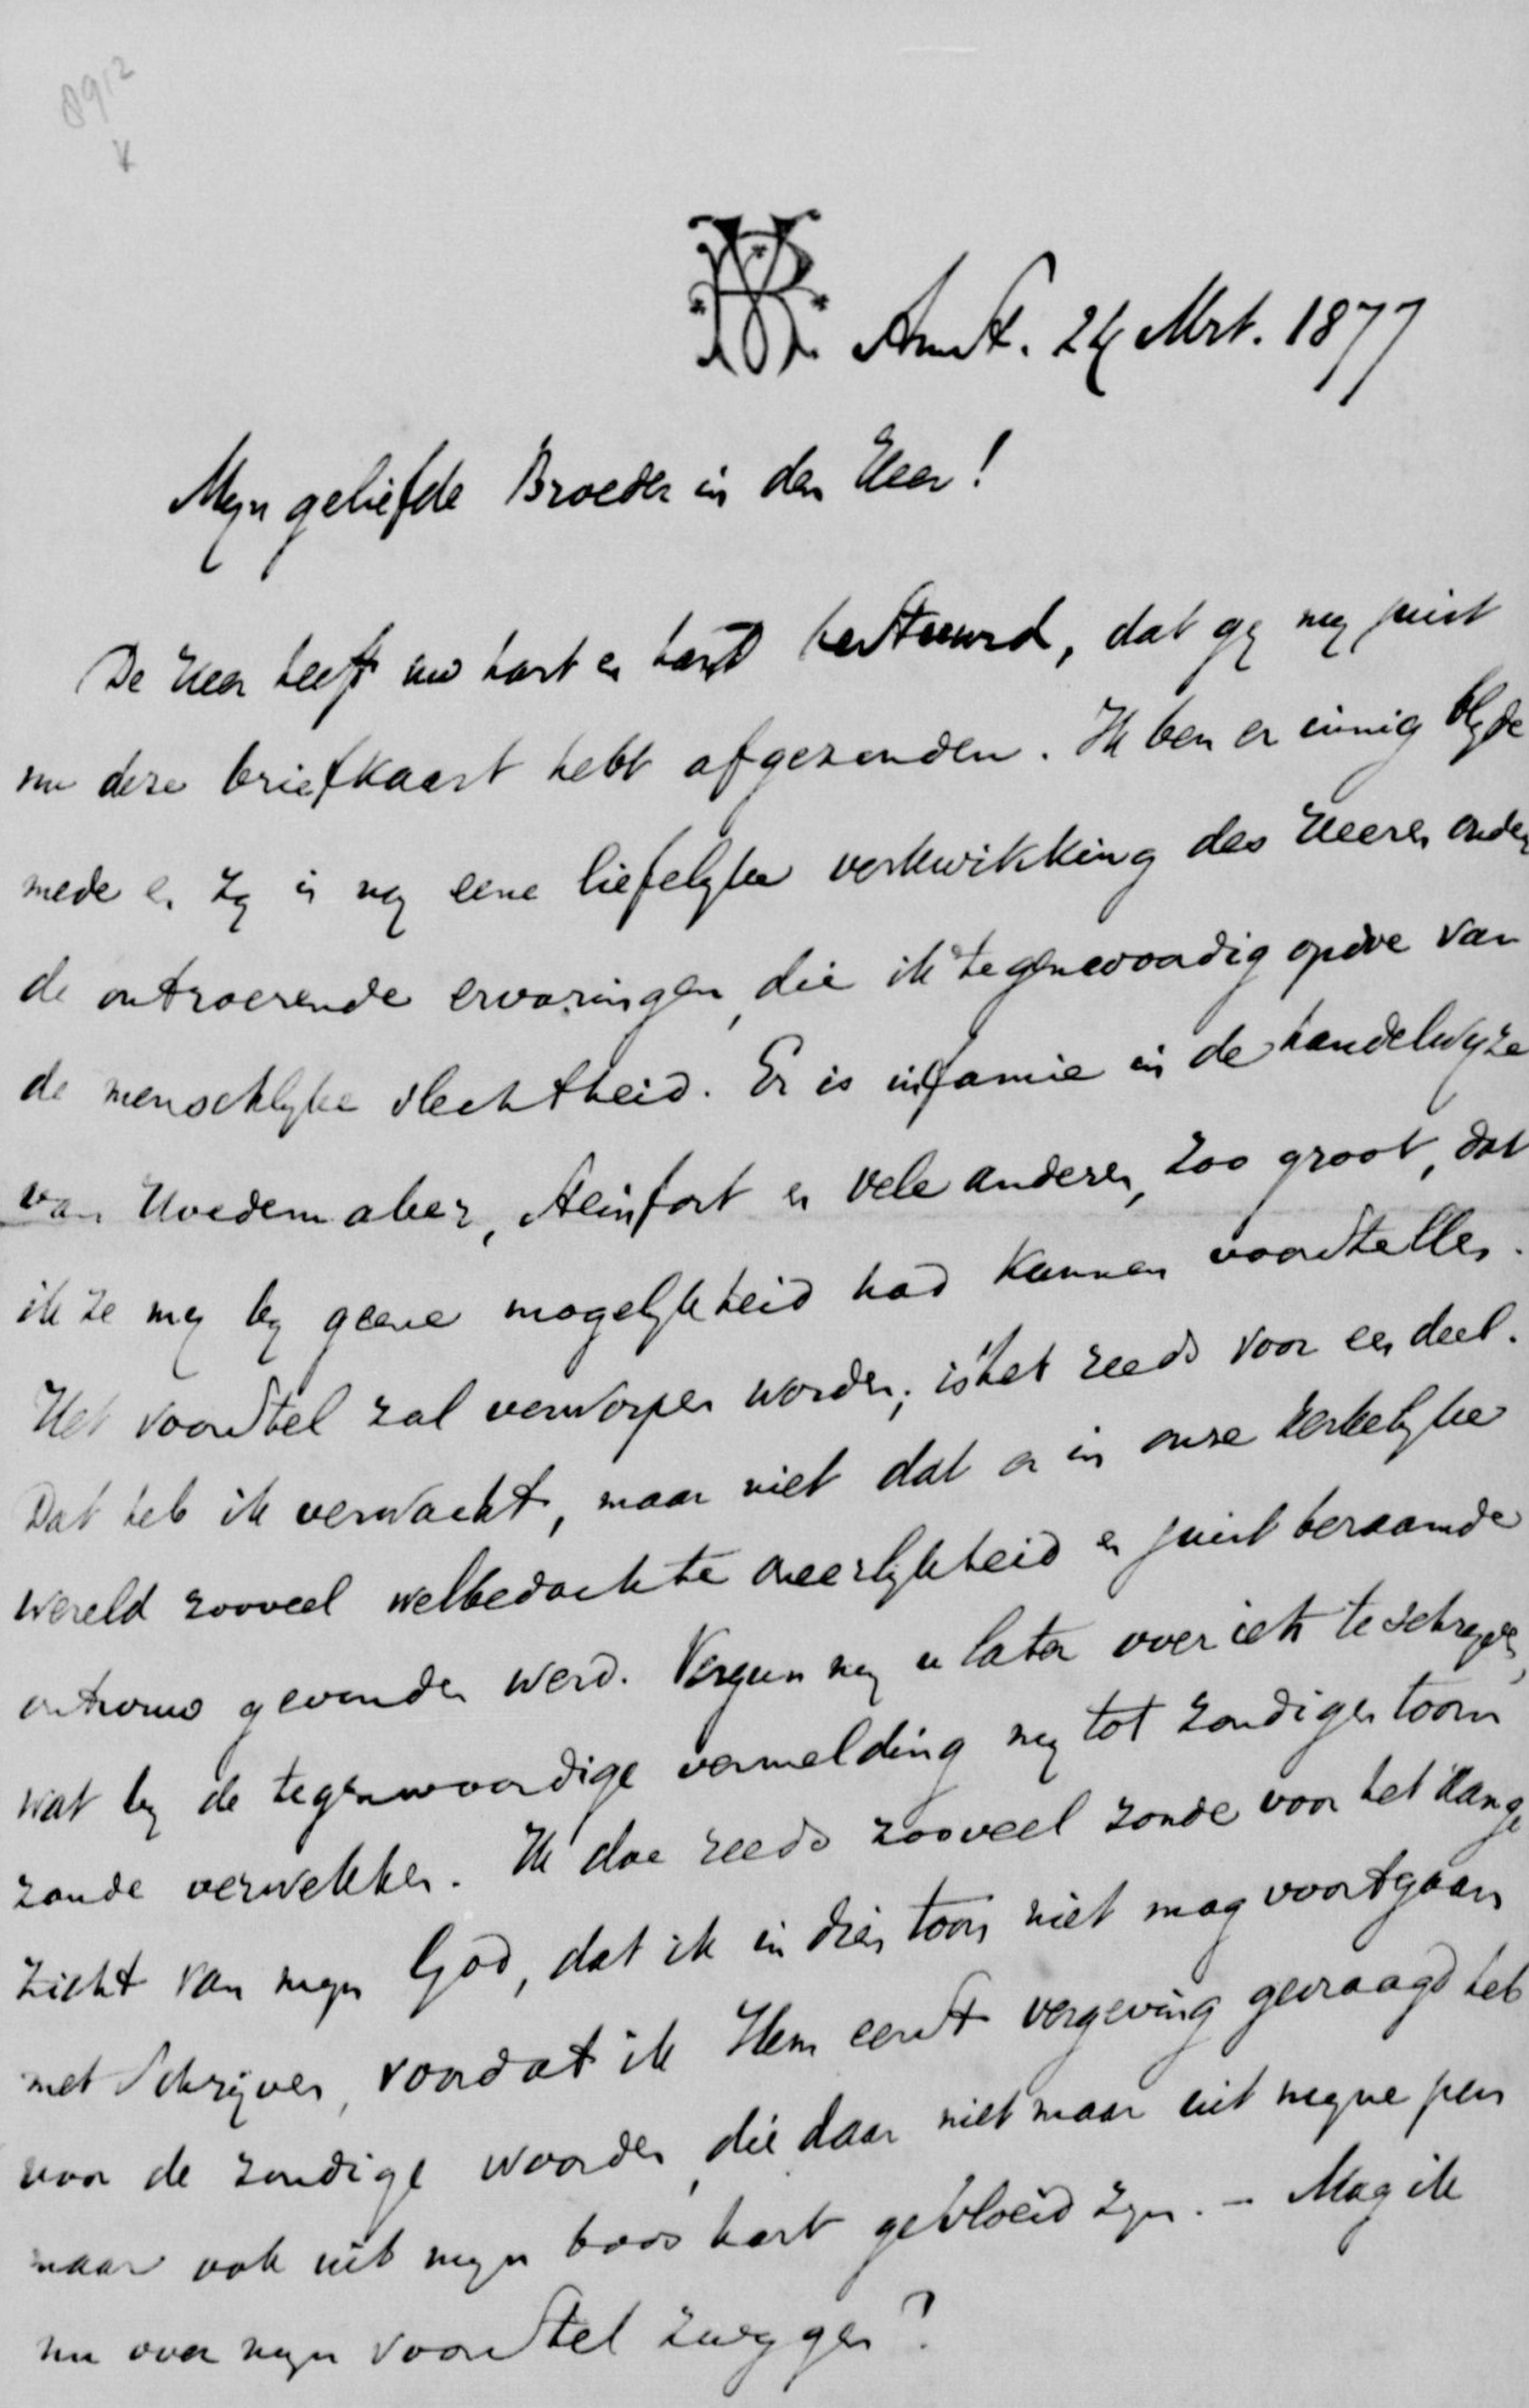 8912
Amst. 24 Mrt. 1877
Mijn geliefde Broeder in den Heer!
De Heer heeft uw hart en hand bestuurd, dat gij mij juist
nu deze briefkaart hebt afgezonden. Ik ben er innig blijde
mede en zij is mij eene liefelijke verkwikking des Heeren onder
de ontroerende ervaringen, die ik tegenwoordig opdoe van
de menschlijke slechtheid. Er is infamie in de handelwijze
van Hoedemaker, Steinfort en vele anderen, zoo groot, dat
ik ze mij bij geene mogelijkheid had kunnen voorstellen.
Het voorstel zal verworpen worden; is het reeds voor een deel.
Dat heb ik verwacht, maar niet dat er in onze kerkelijke
wereld zooveel welbedachte oneerlijkheid en juist beraamde
ontrouw gevonden werd. Vergun mij u later over iets te schrijven,
wat bij de tegenwoordige vermelding mij tot zondigen toorn
zoude verwekken. Ik doe reeds zooveel zonde voor het aange
zicht van mijn God, dat ik in dien toon niet mag voortgaan
met Schrijven, voordat ik Hem eerst vergeving gevraagd heb
voor de zondige woorden, die daar niet maar uit mijne pen
maar ook uit mijn boos hart gevloeid zijn. – Mag ik
nu over mijn voorstel zwijgen?